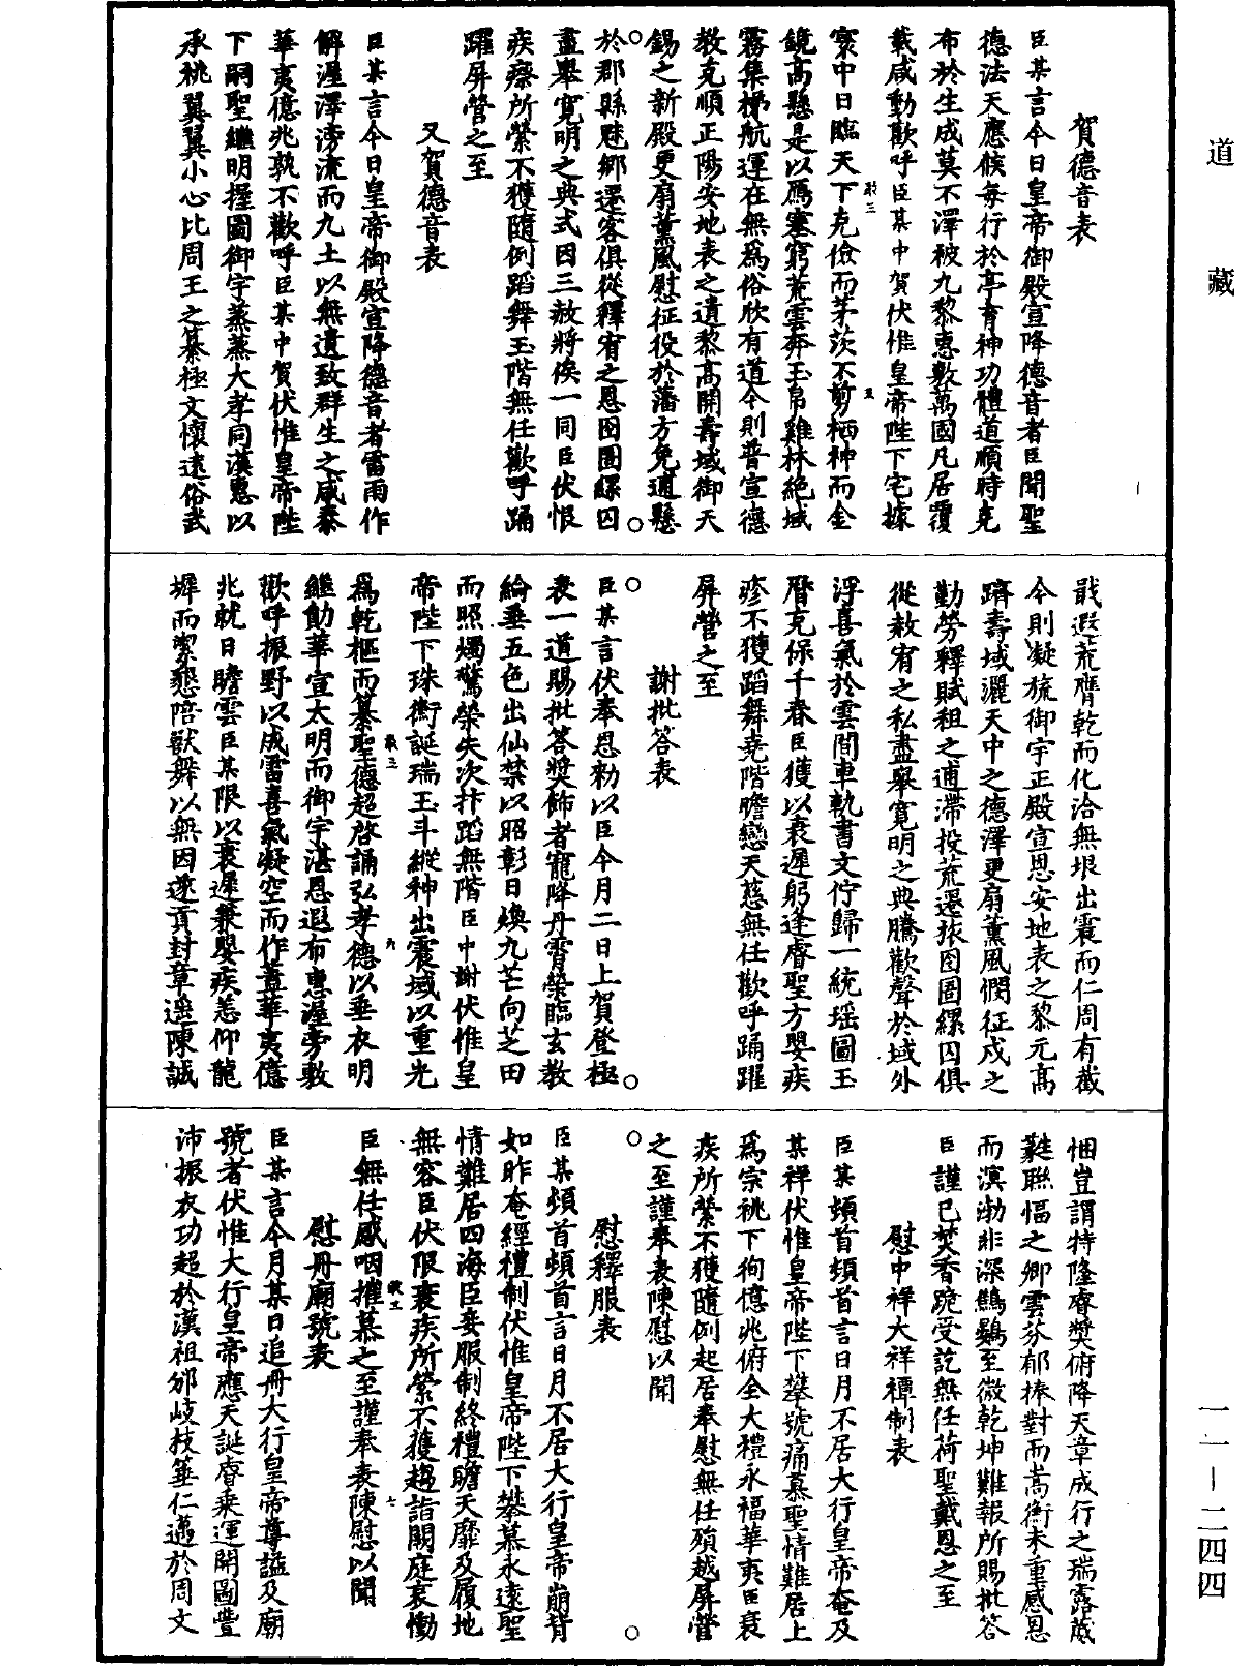 道藏
賀德音表
臣某言今日皇帝御殿宣降德音者臣聞聖
德法天應候每行於亭育神功體道順時克
布於生成莫不澤被九黎惠敷萬國凡居覆
載咸動歡呼臣某中賀伏惟皇帝陛下宅據
寰中日臨天下克儉而茅茨不剪栖神而金
鏡高懸是以鴈塞窮荒雲奔玉帛雞林絕域
霧集梯航運在無為俗欣有道今則普宣德
教克順正陽安地表之遺黎高開壽域御天
錫之新殿更扇薰風慰征役於藩方免逋懸
於郡縣魑鄉還客俱從釋宥之恩囹圄縲囚
盡舉寬明之典式因三赦將俟一同臣伏恨
疾瘵所縈不獲隨例蹈舞玉階無任歡呼踊
躍屏營之至
又賀德音表
臣某言今日皇帝御殿宣降德音者雷雨作
解渥澤滂流而九土以無遺致群生之咸泰
華夷億兆孰不歡呼臣某中賀伏惟皇帝陛
下嗣聖繼明握圖御宇蒸蒸大孝同漢惠以
承祧翼翼小心比周王之纂極文懷遠俗武
戢遐荒膺乾而化洽無垠出震而仁周有截
今則凝旒御宇正殿宣恩安地表之黎元高
躋壽域灑天中之德澤更扇薰風憫征戍之
勤勞釋賦租之逋滯投荒還旅囹圄縲囚俱
從赦宥之私盡舉寬明之典騰歡聲於域外
浮喜氣於雲間車軌書文佇歸一統瑶圖玉
曆克保千春臣獲以衰遲躬逢睿聖方嬰疾
疹不獲蹈舞堯階瞻戀天慈無任歡呼踊躍
屏營之至
謝批答表
臣某言伏奉恩勑以臣今月二日上賀登極
表一道賜批答獎飾者寵降丹霄榮臨玄教
綸垂五色出仙禁以昭彰日煥九芒向芝田
而照燭驚榮失次抃蹈無階臣中謝伏惟皇
帝陛下珠衡誕瑞玉斗縱神出震域以重光
為乾樞而纂聖德超啓誦弘孝德以垂衣明
繼勛華宣太明而御宇湛恩遐布惠渥旁敷
歡呼振野以成雷喜氣凝空而作蓋華夷億
兆就日瞻雲臣某限以衰遲兼嬰疾恙仰龍
墀而累懇陪獸舞以無因遂貢封章遥陳誠
悃豈謂特隆睿獎俯降天章成行之瑞露葳
蕤聯幅之卿雲芬郁捧對而嵩衡未重感恩
而溟渤非深鷦鷃至微乾坤難報所賜批答
臣謹已焚香跪受訖無任荷聖戴恩之至
慰中祥大祥禫制表
臣某頓首頓首言日月不居大行皇帝奄及
某祥伏惟皇帝陛下攀號痛慕聖情難居上
為宗祧下徇億兆俯全大禮永福華夷臣衰
疾所縈不獲隨例起居奉慰無任殞越屏營
之至謹奉表陳慰以聞
慰釋服表
臣某頓首頓首言日月不居大行皇帝崩背
如昨奄經禮制伏惟皇帝陛下攀慕永遠聖
情難居四海臣妾服制終禮瞻天靡及履地
無容臣伏限衰疾所縈不獲趨詣闕庭哀慟
臣無任感咽摧慕之至謹奉表陳慰以聞
慰冊廟號表
臣某言今月某日追冊大行皇帝尊謚及廟
號者伏惟大行皇帝應天誕睿乗運開圖豐
沛振衣功超於漢祖邠岐杖箠仁邁於周文
一一—二四四